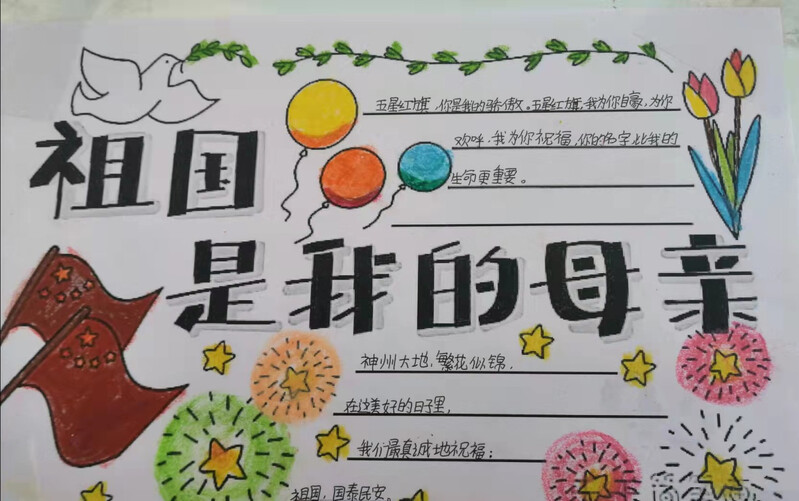 五星红旗,你是我的骄傲。五星红旗,我为你自豪,为你
欢呼,我为你祝福,你的名字,比我的
生命更重要。
祖国
是我的母亲
神州大地,繁花似锦,
在这美好的日子里,
我们最真诚地祝福:
祖国,国泰民安。